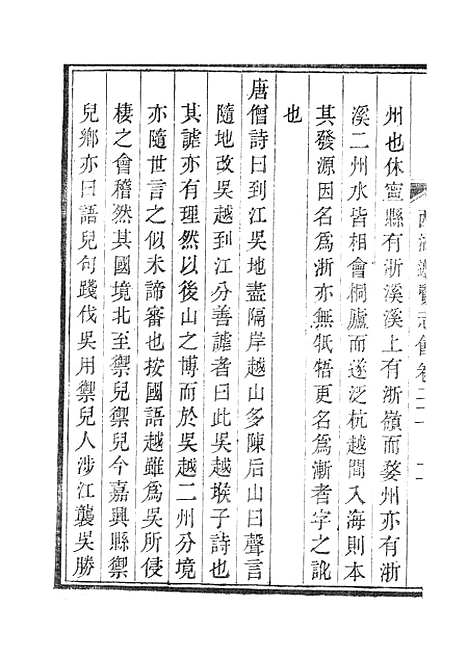 州也休寧縣有浙溪溪上有浙嶺而婺州亦有浙
溪二州水皆相會桐廬而遂泛杭越間入海則本
其發源因名為浙亦無牴牾更名為漸者字之訛
也
唐僧詩曰到江吳地盡隔岸越山多陳后山曰聲言
隨地改吳越到江分善謔者曰此吳越堠子詩也
其謔亦有理然以後山之博而於吳越二州分境
亦隨世言之似未諦審也按國語越雖為吳所侵
棲之會稽然其國境北至禦兒禦兒今嘉興縣禦
兒鄉亦曰語兒句踐伐吳用禦兒人涉江襲吳勝